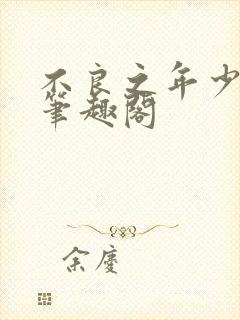 不良之年少
筆趣閣
余慶